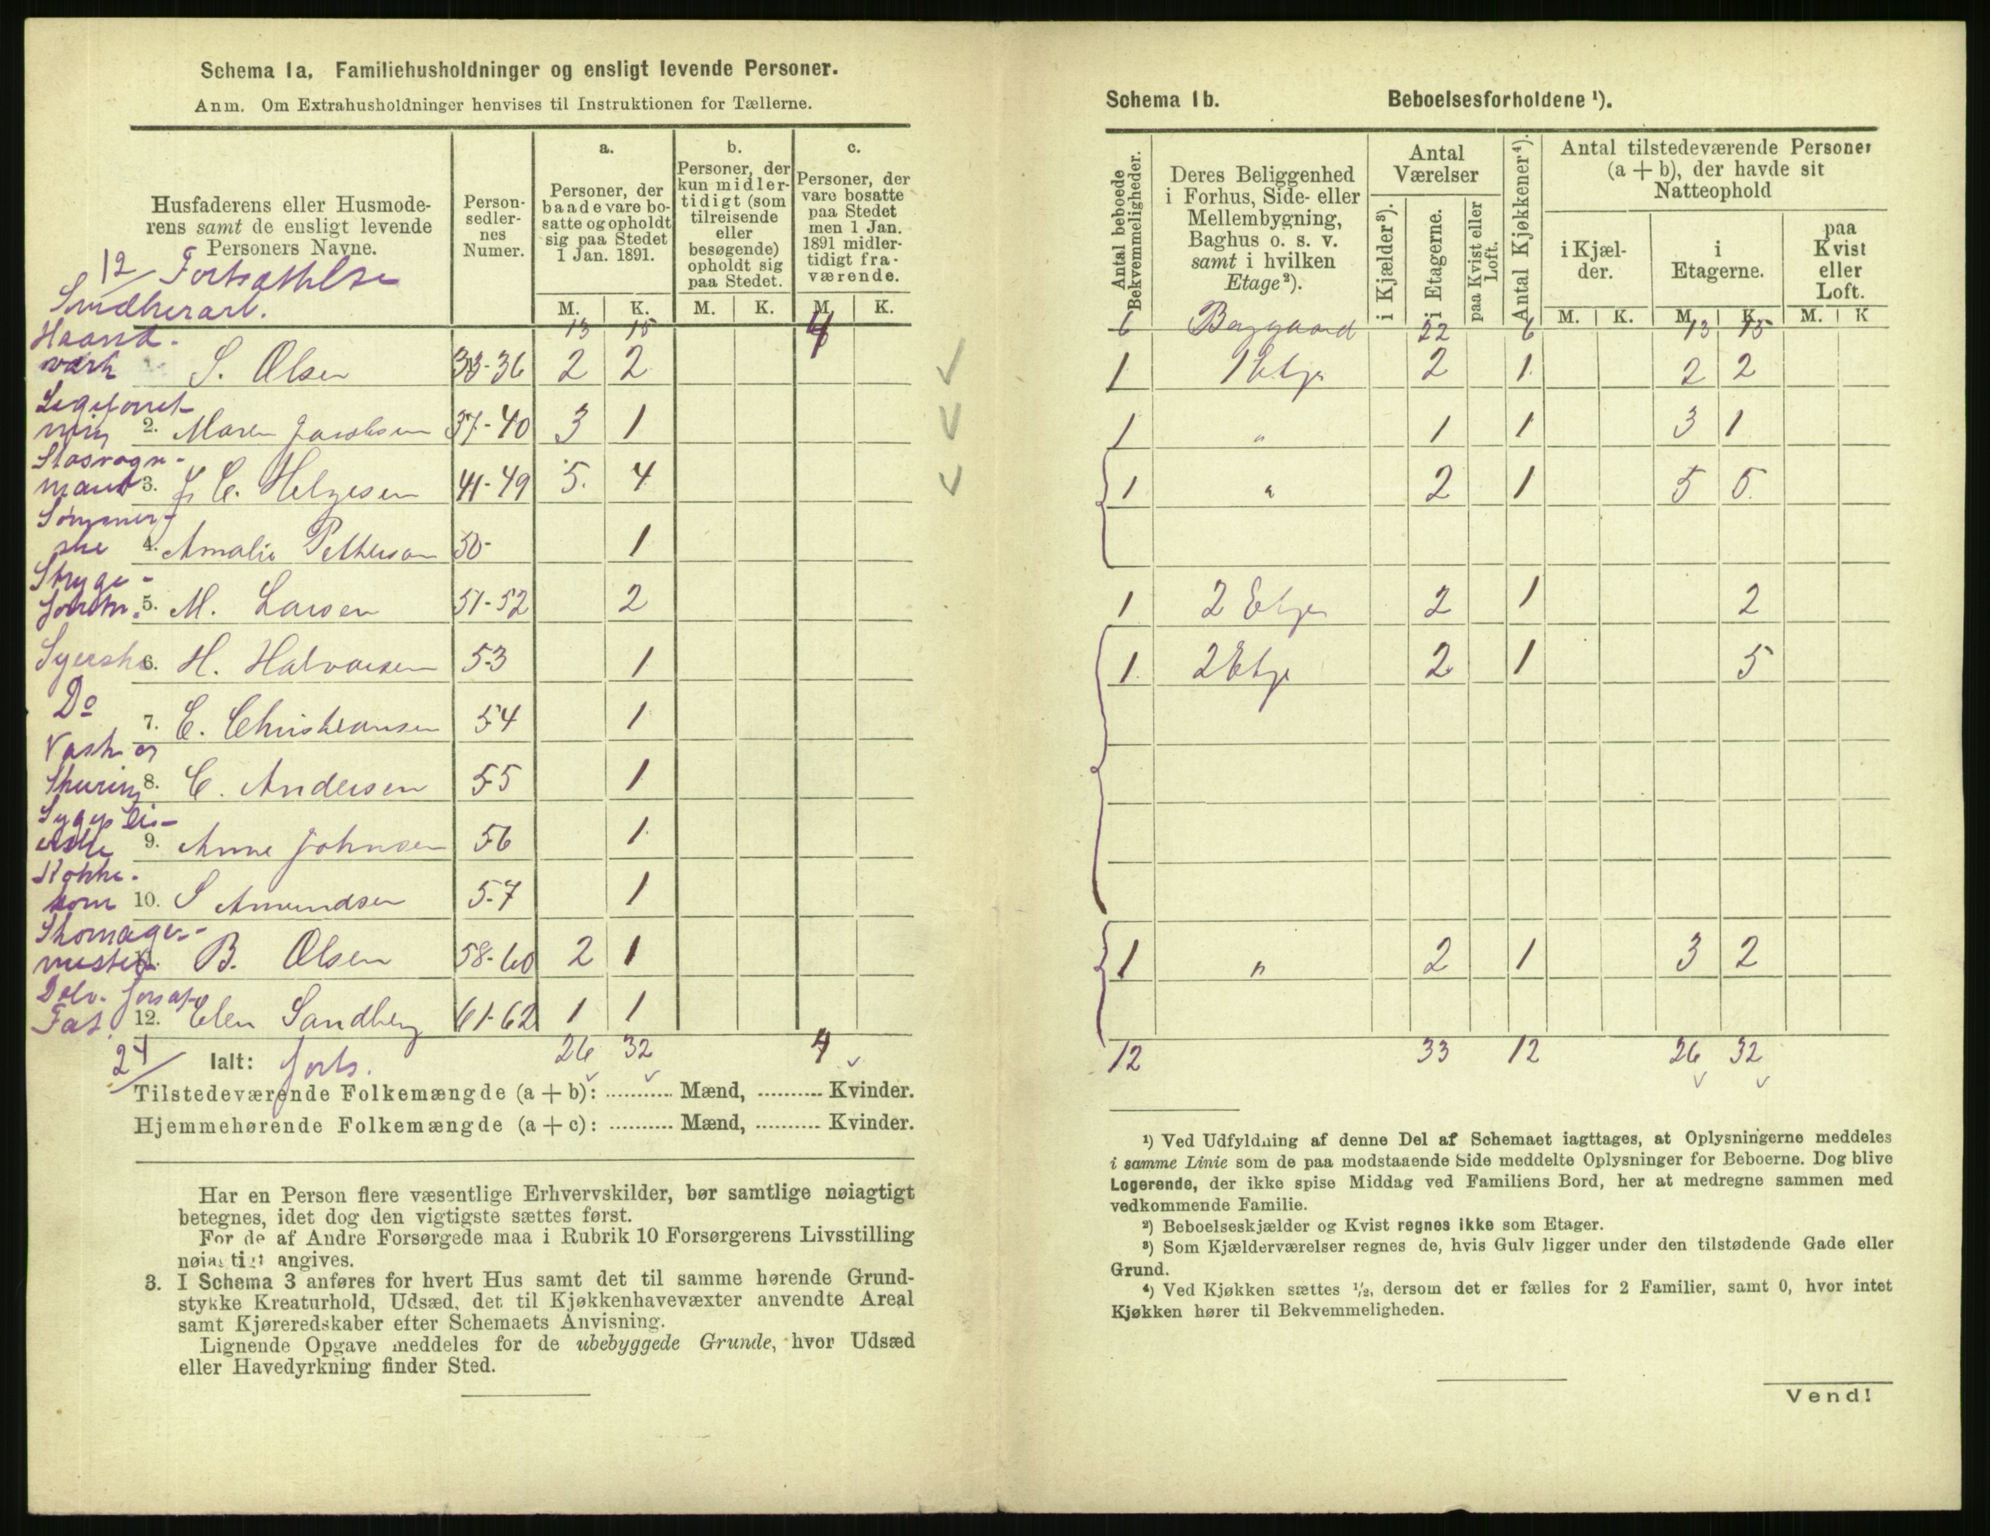 Schema 1a, Familiehusholdninger og ensligt levende Personer.
Anm. Om Extrahusholdninger henvises til Instruktionen for Tællerne.
Husfaderens eller Husmode-
rens samt de ensligt levende
Personers Navne.
Person-
sedler-
nes
Numer.
a.
Personer, der
baade vare bo-
satte og opholdt
sig paa Stedet
1 Jan. 1891.
b.
Personer, der
kun midler-
tidigt (som
tilreisende
eller
besøgende)
opholdt sig
paa Stedet.
c.
Personer, der
vare bosatte
paa Stedet
men 1 Jan.
1891 midler-
tidigt fra-
værende.
M. K. M. K. M. K.
12 Fortsættelse
13 15 4
Haand-
værk S. Olsen 33-36 2 2
2. Maren Jacobsen 37-40 3 1
Stasvogn-
mand 3. J. C. Helgesen 41-49 5. 4
4. Amalie Petterson 50- 1
Stryge-
5. M. Larsen 51-52 2
Syerske 6. H. Halvorsen 53 1
Do 7. C. Christiansen 54 1
Vask og
Skuring 8. C. Andersen 55 1
9. Anne Johnsen 56 1
10. S Amundsen 57 1
Skomager-
mester B. Olsen 58-60 2 1
12. Elen Sandberg 61-62 1 1
24 Ialt: forts. 26 32 4
Tilstedeværende Folkemængde (a + b): .......... Mænd, .......... Kvinder.
Hjemmehørende Folkemængde (a + c): .......... Mænd, .......... Kvinder.
Har en Person flere væsentlige Erhvervskilder, bør samtlige nøiagtigt
betegnes, idet dog den vigtigste sættes først.
For de af Andre Forsørgede maa i Rubrik 10 Forsørgerens Livsstilling
nøiagtigt angives.
3. I Schema 3 anføres for hvert Hus samt det til samme hørende Grund-
stykke Kreaturhold, Udsæd, det til Kjøkkenhavevæxter anvendte Areal
samt Kjøreredskaber efter Schemaets Anvisning.
Lignende Opgave meddeles for de ubebyggede Grunde, hvor Udsæd
eller Havedyrkning finder Sted.
Schema 1b. Beboelsesforholdene ¹).
Antal beboede
Bekvemmeligheder.
Deres Beliggenhed
i Forhus, Side- eller
Mellembygning,
Baghus o. s. v.
samt i hvilken
Etage²).
Antal
Værelser
i Kjælder³).
i Etagerne.
paa Kvist eller
Loft.
Antal Kjøkkener⁴).
Antal tilstedeværende Personer
(a + b), der havde sit
Natteophold
i Kjæl-
der.
i
Etagerne.
paa
Kvist
eller
Loft.
M. K. M. K. M. K
6 Baggaard 22 6 13 15
1 1 Etge 2 1 2 2
1 " 1 1 3 1
1 " 2 1 5 5
1 2 Etge 2 1 2
1 2 Etge 2 1 5
1 " 2 1 3 2
12 33 12 26 32
¹) Ved Udfyldning af denne Del af Schemaet iagttages, at Oplysningerne meddeles
i samme Linie som de paa modstaaende Side meddelte Oplysninger for Beboerne. Dog blive
Logerende, der ikke spise Middag ved Familiens Bord, her at medregne sammen med
vedkommende Familie.
²) Beboelseskjælder og Kvist regnes ikke som Etager.
³) Som Kjælderværelser regnes de, hvis Gulv ligger under den tilstødende Gade eller
Grund.
⁴) Ved Kjøkken sættes ½, dersom det er fælles for 2 Familier, samt 0, hvor intet
Kjøkken hører til Bekvemmeligheden.
Vend!